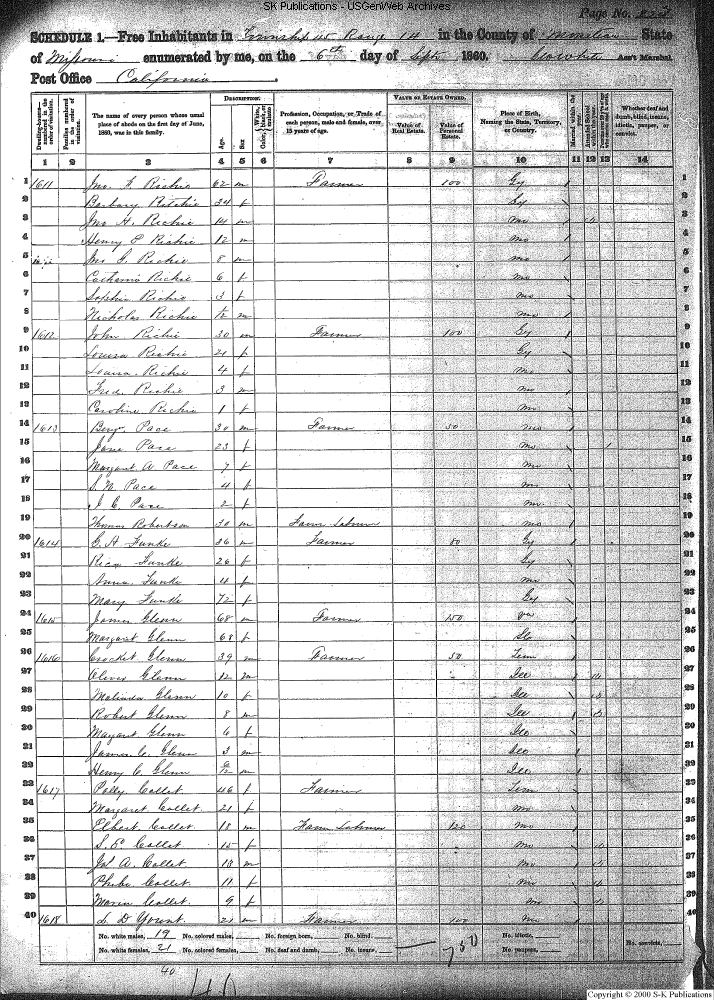 SK Publications - USGenWeb Archives
Page No.
SCHEDULE 1.—Free Inhabitants in Township 45 Range 14 in the County of Moniteau State
of Missouri enumerated by me, on the 6th day of Sept 1860. Ass't Marshal.
Post Office California
Dwelling-houses— numbered in the order of visitation.
Families numbered in the order of visitation.
The name of every person whose usual place of abode on the first day of June, 1860, was in this family.
DESCRIPTION.
Age.
Sex.
Color, White, black, or mulatto.
Profession, Occupation, or Trade of each person, male and female, over 15 years of age.
VALUE OF ESTATE OWNED.
Value of Real Estate.
Value of Personal Estate.
Place of Birth, Naming the State, Territory, or Country.
Married within the year.
Attended School within the year.
Whether deaf and dumb, blind, insane, idiotic, pauper, or convict.
1 2 3 4 5 6 7 8 9 10 11 12 13 14
1 1611 Jno. F Richie 62 m Farmer 100 Gy 1
2 Barbary Ritchie 34 f Gy 2
3 Jno H. Richie 14 m Mo 3
4 Henry P Richie 12 m Mo 4
5 Richie 8 m Mo 5
6 Catherine Richie 6 f Mo 6
7 Sophia Richie 3 f Mo 7
8 Nicholas Richie m Mo 8
9 1612 John Richie 30 m Farmer 100 Gy 9
10 Louisa Richie 21 f Gy 10
11 Louisa Richie 4 f Mo 11
12 Fred. Richie 3 m Mo 12
13 Caroline Richie 1 f Mo 13
14 1613 Benj. Pace 30 m Farmer 50 Mo 14
15 Jane Pace 23 f Mo 15
16 Margaret A Pace 7 f Mo 16
17 S. M Pace 4 f Mo 17
18 C. Pace 2 f Mo 18
19 Thomas Robertson 30 m Farm Laborer Mo 19
20 1614 G. A Funke 36 m Farmer 50 Gy 20
21 Funke 26 f Gy 21
22 Anna Funke f Mo 22
23 Mary Funke 72 f Gy 23
24 1615 James Glenn 68 m Farmer Va 24
25 Margaret Glenn 68 f Do 25
26 1616 Crocket Glenn 39 m Farmer 50 Tenn 26
27 Oliver Glenn 12 m Ill 27
28 Malinda Glenn 10 f Ill 28
29 Robert Glenn 8 m Ill 29
30 Margaret Glenn 6 f 30
31 James C. Glenn 3 m 31
32 Henry C. Glenn m 32
33 1617 Polly Collet 46 f Farmer Tenn 33
34 Margaret Collet 21 f Mo 34
35 Elbert Collet 18 m Farm Laborer 120 Mo 35
36 Collet 15 f Mo 36
37 Jas A. Collet 13 m Mo 37
38 Phebe Collet 11 f Mo 38
39 Collet 9 f Mo 39
40 1618 D Yount 21 m Farmer 100 Mo 40
No. white males, 19 No. colored males, No. foreign born, No. blind,
No. white females, 21 No. colored females, No. deaf and dumb, No. insane, 750 No. idiotic, No. paupers, No. convicts,
40
Copyright © 2000 S-K Publications